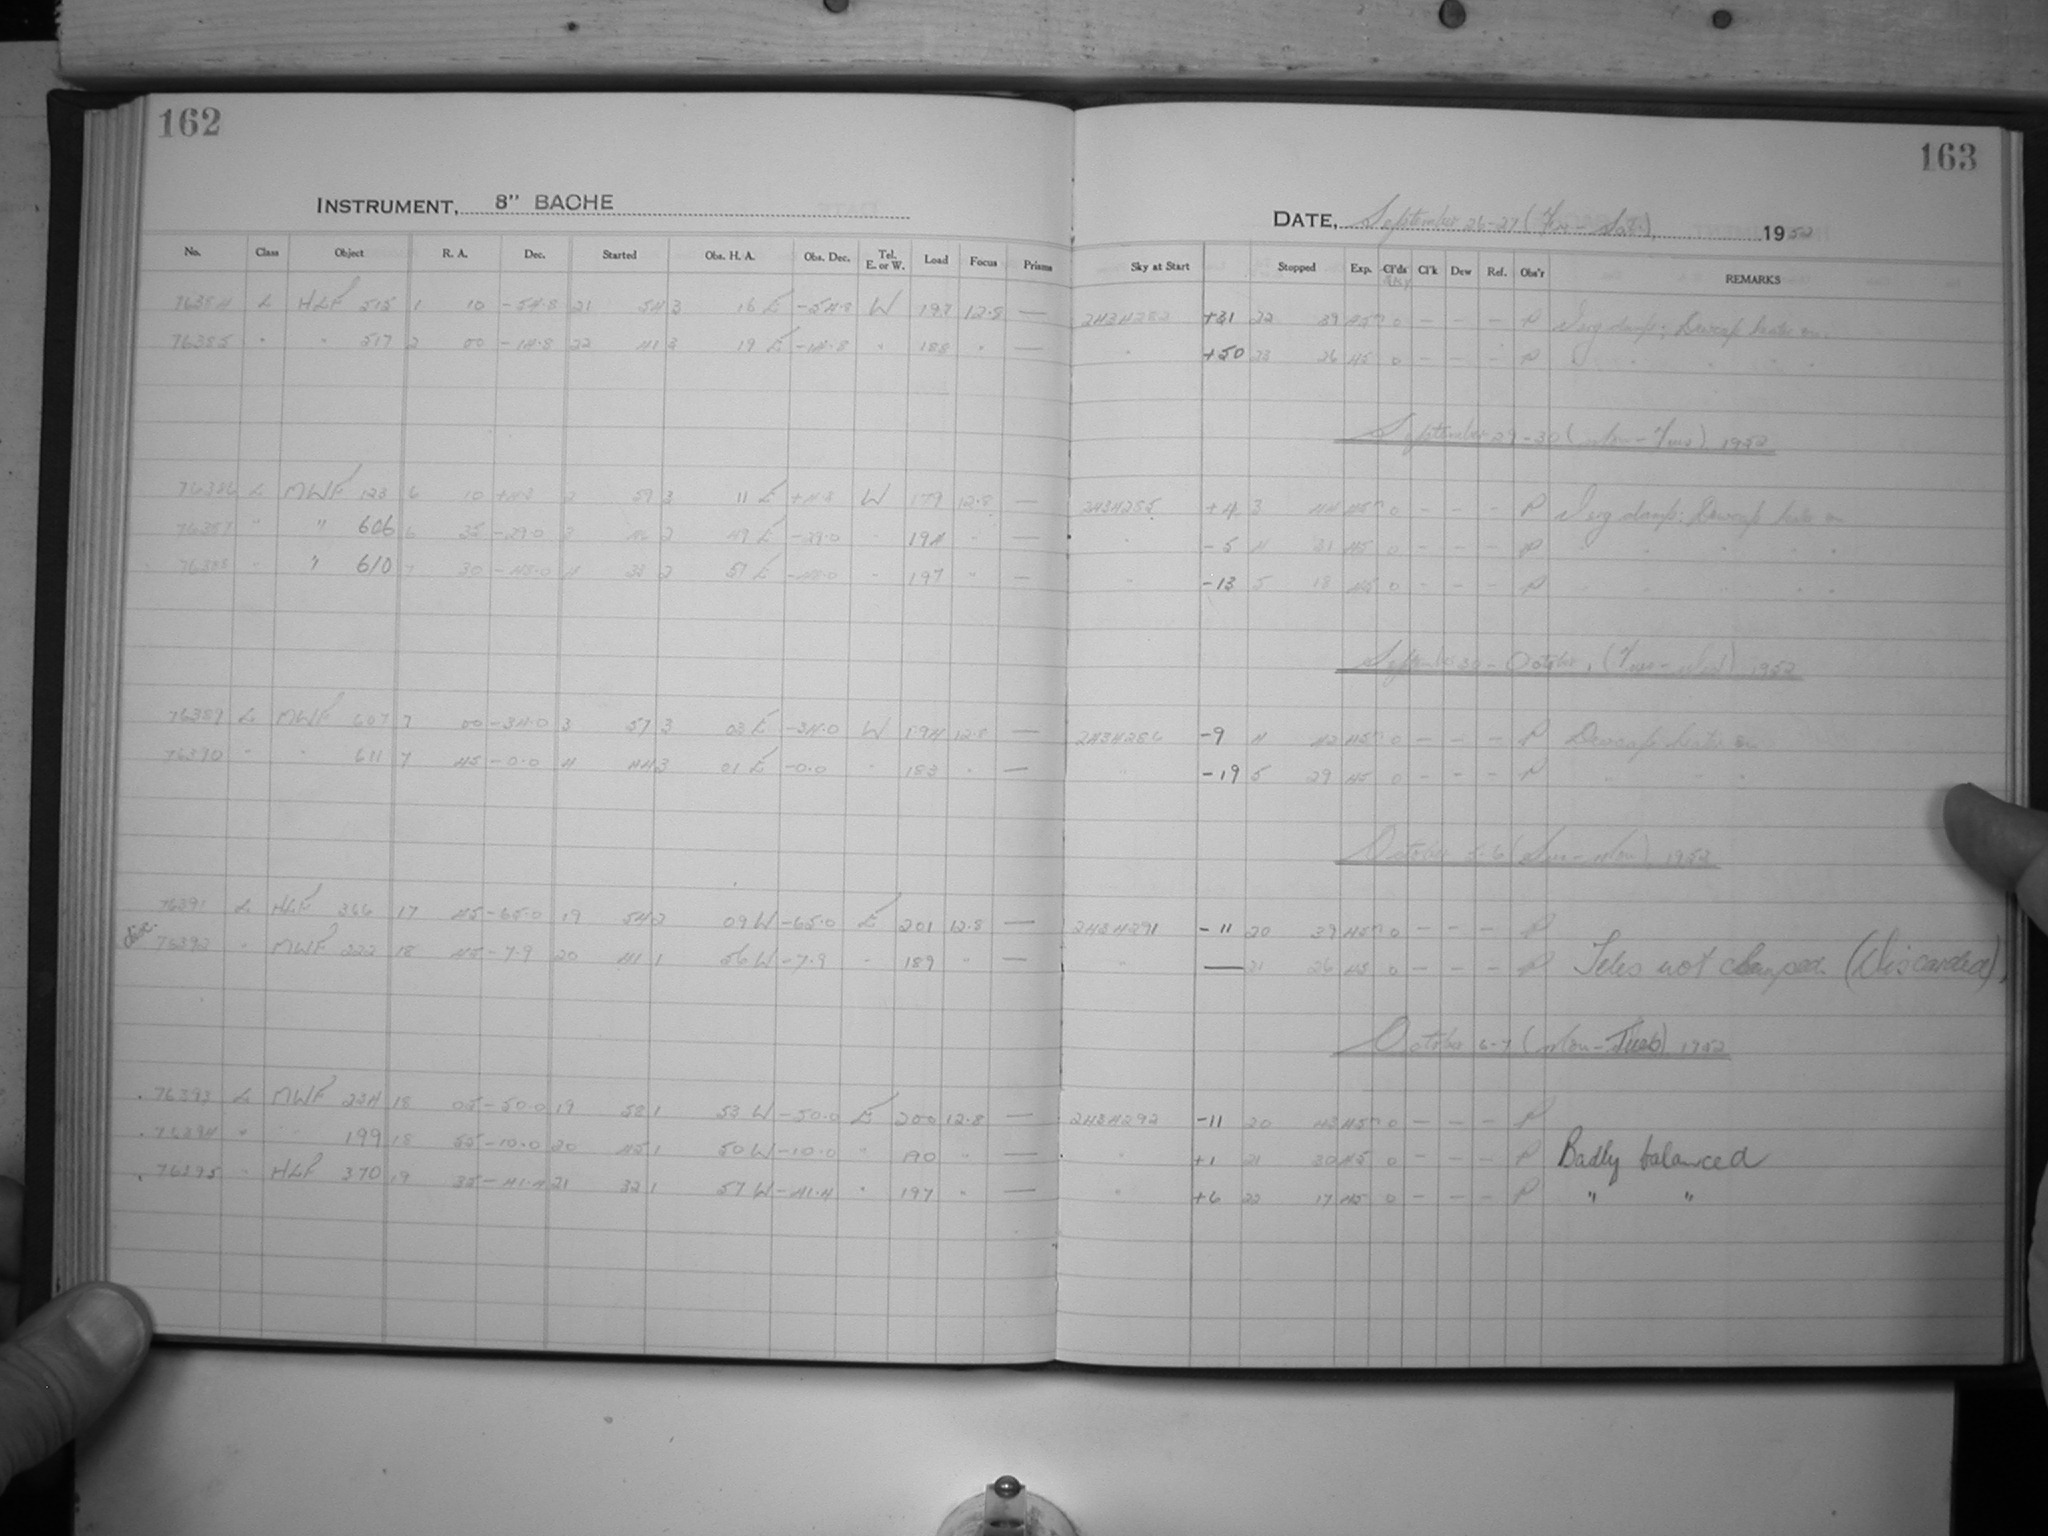 162
163
INSTRUMENT, 8" BACHE
DATE, September 26-27 (Fri - Sat), 1952
No. Class Object R. A. Dec. Started Obs. H. A. Obs. Dec. Tel. E. or W. Load Focus Prisms Sky at Start Stopped Exp. Cl'ds Cl'k Dew Ref. Obs'r REMARKS
76384 L HLF 515 1 10 -54.8 21 54 3 16 E -54.8 W 197 12.8 — 2434282 +31 22 39 45m 0 - - - P Very damp; Dewcap heater on.
76385 " " 517 2 00 -14.8 22 41 3 19 E -14.8 " 188 " — " +50 23 26 45 0 - - - P " " " " "
September 29-30 (Mon - Tues) 1952
76386 L MWF 123 6 10 2 59 3 11 E W 179 12.8 — 2434285 +4 3 44 45m 0 - - - P Very damp; Dewcap heater on
76387 " " 606 6 35 -29.0 3 46 2 49 E -29.0 " 194 " — " -5 4 31 45 0 - - - P " " " " "
76388 " " 610 7 30 -45.0 4 33 2 57 E -45.0 " 197 " — " -13 5 18 45 0 - - - P " " " " "
September 30 - October 1 (Tues - Wed) 1952
76389 L MWF 607 7 00 -34.0 3 57 3 03 E -34.0 W 194 12.8 — 2434286 -9 4 42 45m 0 - - - P Dewcap heater on
76390 " " 611 7 45 -0.0 4 44 3 01 E -0.0 " 183 " — " -19 5 29 45 0 - - - P " " "
October 5-6 (Sun - Mon) 1952
76391 L HLF 366 17 45 -65.0 19 54 2 09 W -65.0 E 201 12.8 — 2434291 -11 20 39 45m 0 - - - P
disc. 76392 " MWF 222 18 45 -7.9 20 41 1 56 W -7.9 " 189 " — " — 21 26 45 0 - - - P Teles not clamped. (Discarded).
October 6-7 (Mon - Tues) 1952
76393 L MWF 224 18 05 -50.0 19 58 1 53 W -50.0 E 200 12.8 — 2434292 -11 20 43 45m 0 - - - P
76394 " " 199 18 55 -10.0 20 45 1 50 W -10.0 " 190 " — " +1 21 30 45 0 - - - P Badly balanced
76395 " HLF 370 19 35 -41.4 21 32 1 57 W -41.4 " 197 " — " +6 22 17 45 0 - - - P " "